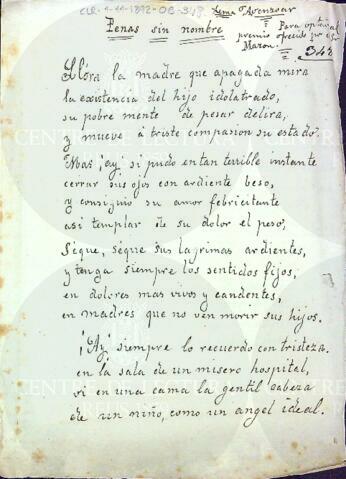 CLR. 1-14-1892-OB-348
Lema "Avenzoar"
Penas sin nombre
Para optar al
premio ofrecido por el Sr.
Maron.
348
Llora la madre que apagada mira
la existencia del hijo idolatrado,
su pobre mente de pesar delira,
y mueve á triste compasion su estado.
Mas ¡ay! si pudo en tan terrible instante
cerrar sus ojos con ardiente beso,
y consiguio su amor febricitante
asi templar de su dolor el peso,
Seque, seque sus lagrimas ardientes,
y tenga siempre los sentidos fijos,
en dolores mas vivos y candentes,
en madres que no ven morir sus hijos.
¡Ay! siempre lo recuerdo con tristeza.
en la sala de un misero hospital,
vi en una cama la gentil cabeza
de un niño, como un angel ideal.
CENTRE DE LECTURA
REUS